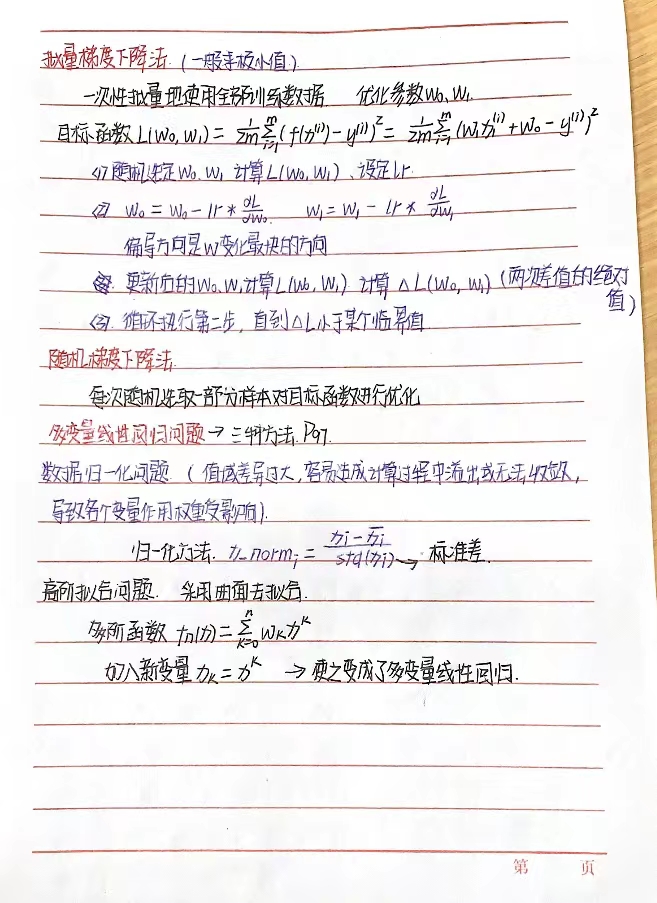 批量梯度下降法.(一般求极小值)
一次性批量地使用全部训练数据 优化参数w₀、w₁.
目标函数L(w₀,w₁) = 1/2m Σᵢ₌₁ᵐ (f(x⁽ⁱ⁾)-y⁽ⁱ⁾)² = 1/2m Σᵢ₌₁ᵐ (w₁x⁽ⁱ⁾+w₀-y⁽ⁱ⁾)²
(1) 随机选定w₀、w₁ 计算L(w₀,w₁)、设定lr.
(2) w₀ = w₀ - lr * ∂L/∂w₀ w₁ = w₁ - lr * ∂L/∂w₁
偏导方向是w变化最快的方向
更新后的w₀、w₁计算L(w₀,w₁) 计算△L(w₀,w₁)(两次差值的绝对
值)
(3). 循环执行第二步,直到△L小于某个临界值
随机梯度下降法.
每次随机选取一部分样本对目标函数进行优化
多变量线性回归问题→三种方法.P97.
数据归一化问题.(值域差异过大,容易造成计算过程中溢出或无法收敛,
导致各个变量作用权重受影响).
归一化方法. x_normᵢ = (xᵢ-x̄ᵢ)/std(xᵢ) → 标准差.
高阶拟合问题. 采用曲面去拟合.
多阶函数 fn(x) = Σₖ₌₀ⁿ wₖxᵏ
加入新变量xₖ=xᵏ → 使之变成了多变量线性回归.
第 页